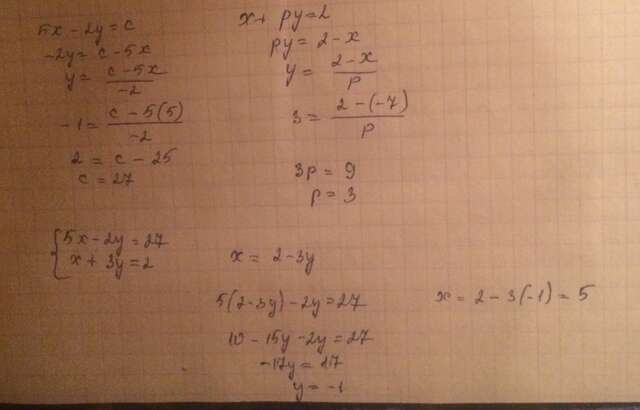 5x - 2y = c
-2y = c - 5x
y = \frac{c - 5x}{-2}
-1 = \frac{c - 5(5)}{-2}
2 = c - 25
c = 27
x + py = 2
py = 2 - x
y = \frac{2 - x}{p}
3 = \frac{2 - (-7)}{p}
3p = 9
p = 3
{ 5x - 2y = 27
x + 3y = 2
x = 2 - 3y
5(2 - 3y) - 2y = 27
10 - 15y - 2y = 27
-17y = 17
y = -1
x = 2 - 3(-1) = 5